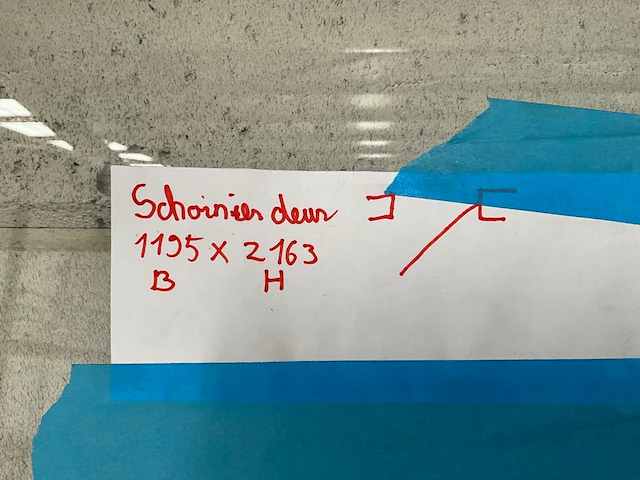 Schoinier deur
1195 x 2163
B H